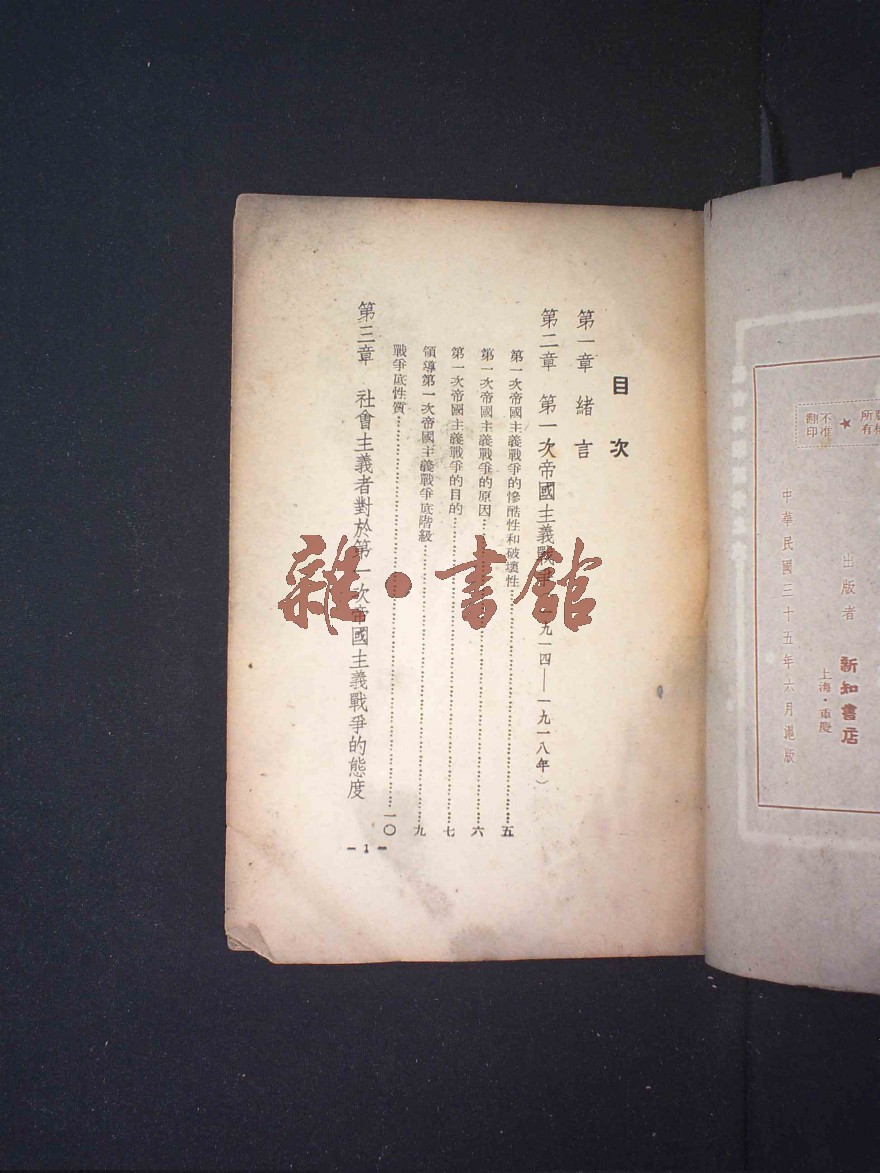 不准
翻印
★
所
有
出版者
新知書店
上海·重慶
中華民國三十五年六月滬版
目次
第一章 緒言
第二章 第一次帝國主義戰爭(一九一四—一九一八年)
第一次帝國主義戰爭的慘酷性和破壞性……五
第一次帝國主義戰爭的原因……六
第一次帝國主義戰爭的目的……七
領導第一次帝國主義戰爭底階級……九
戰爭底性質……一〇
第三章 社會主義者對於第一次帝國主義戰爭的態度
— 1 —
雜·書館